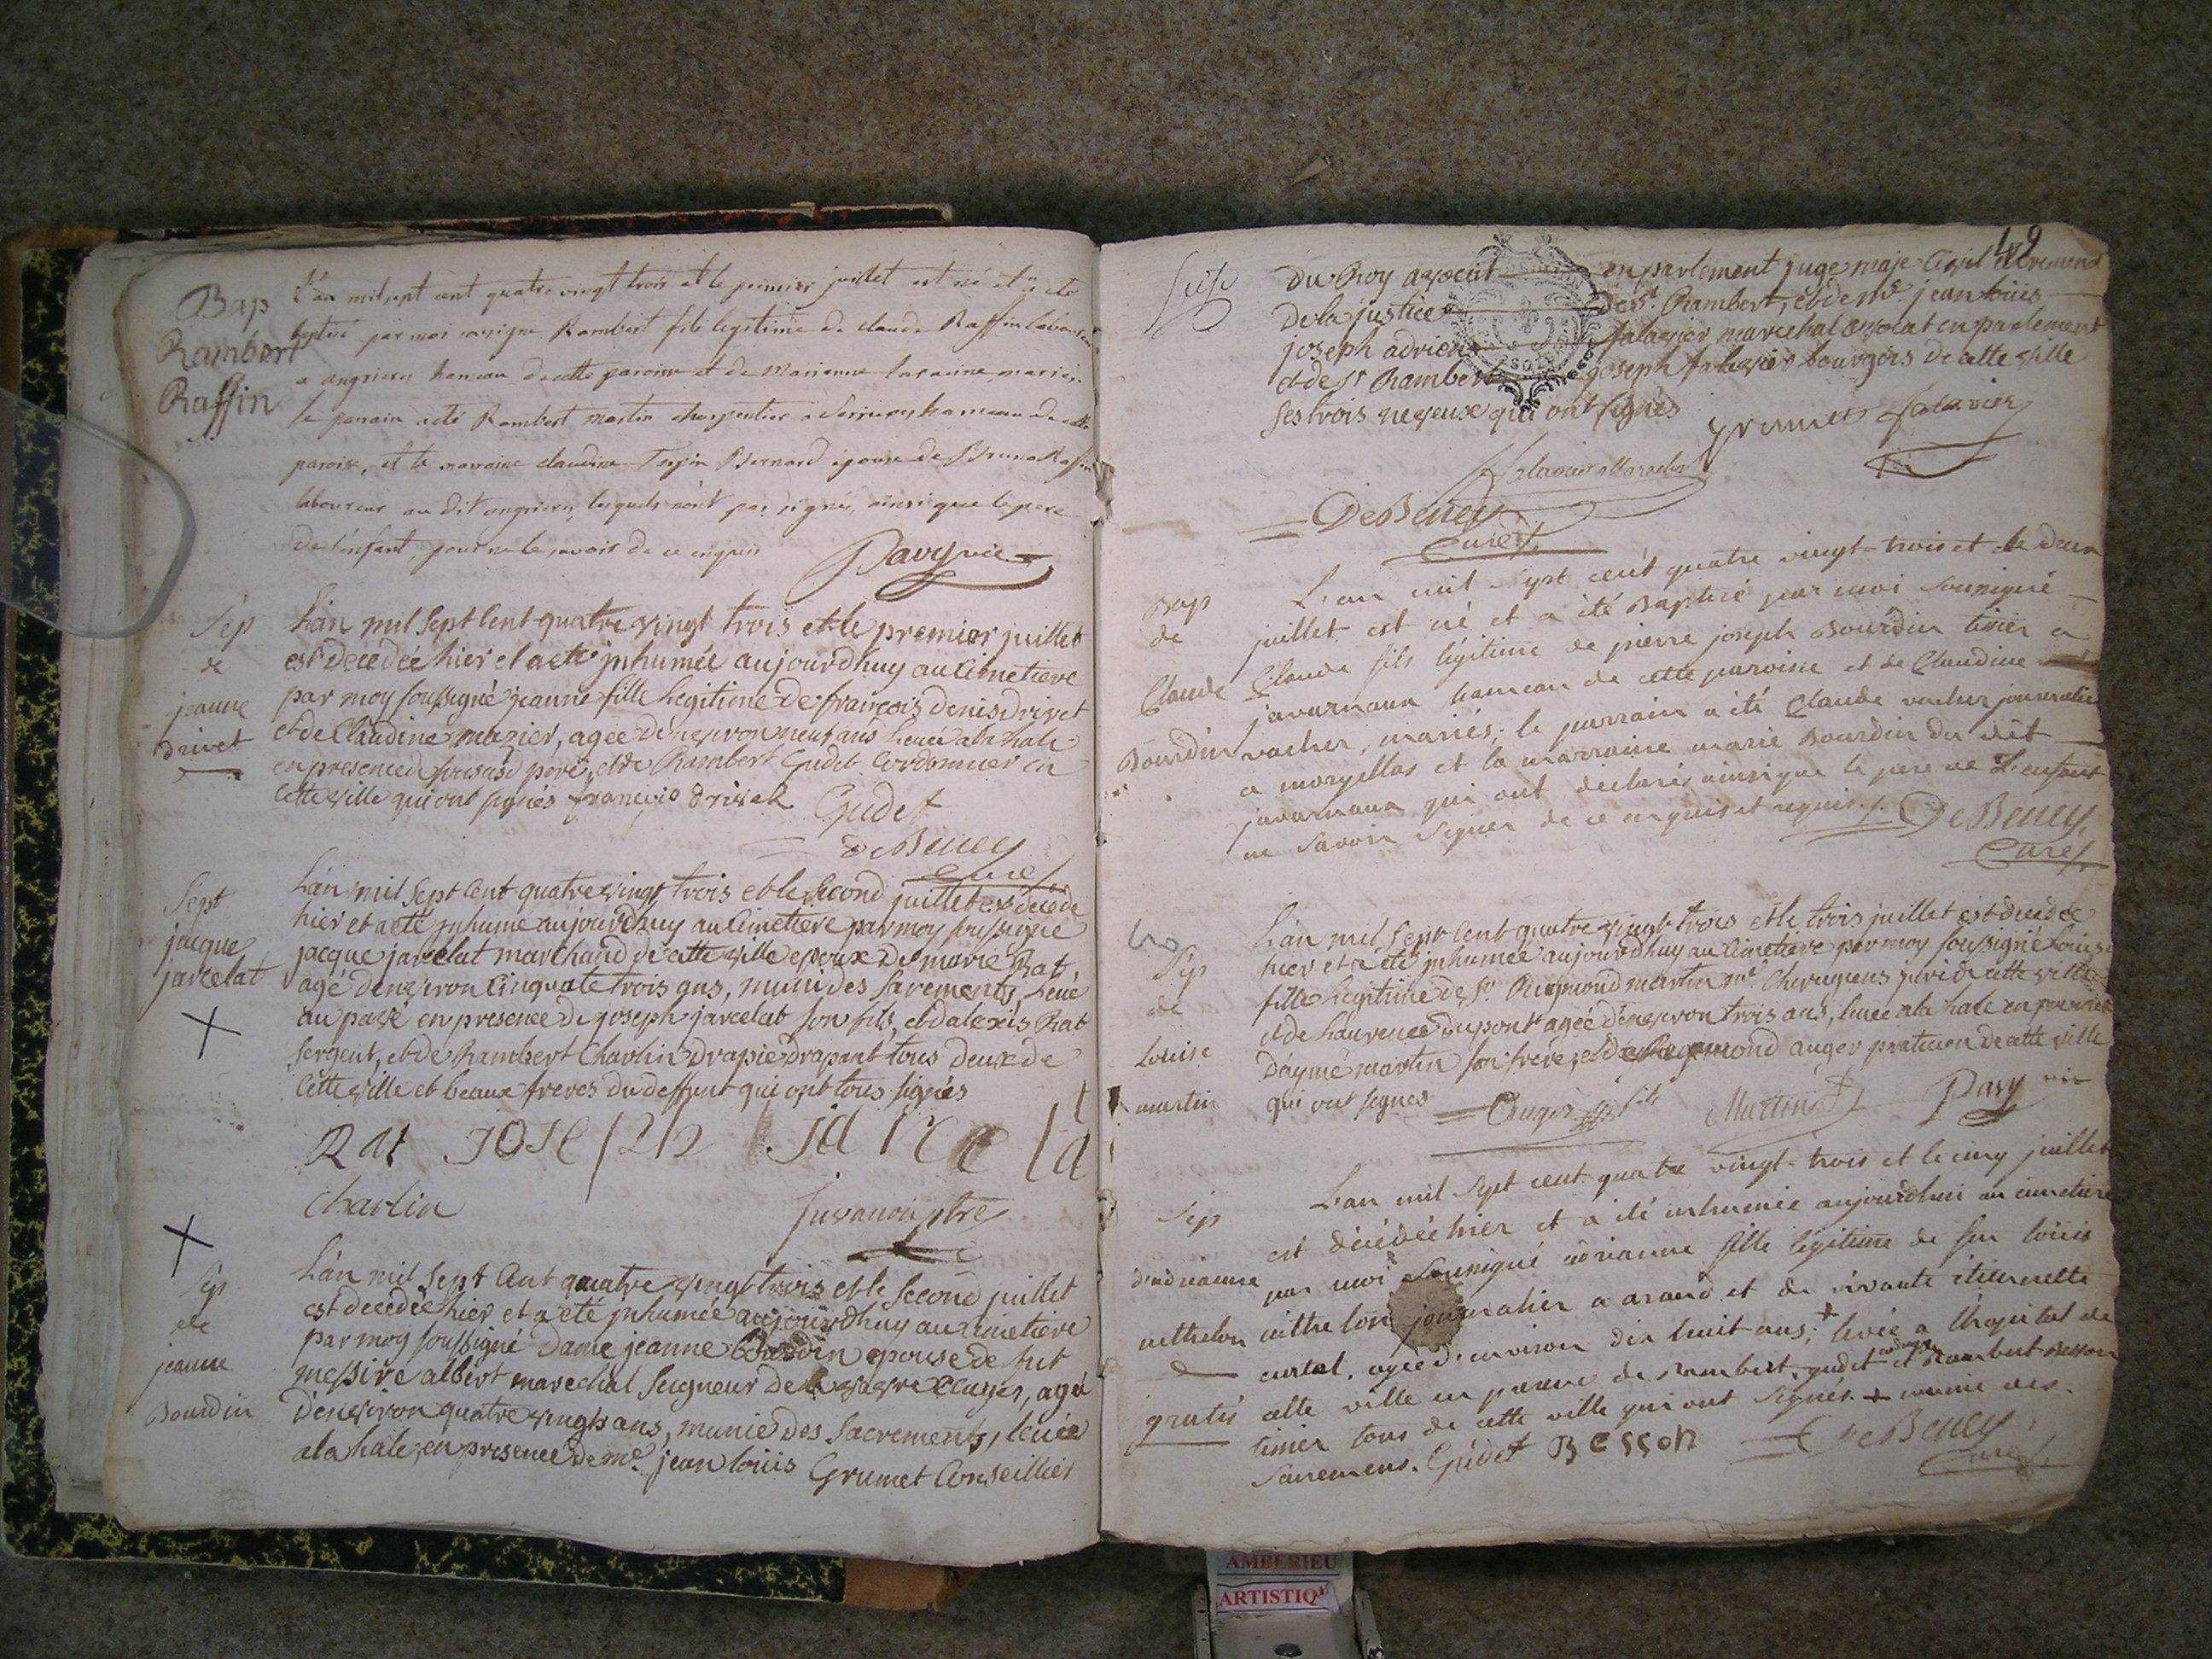 Bap
Rambert
Raffin
L'an mil sept cent quatre vingt trois et le premier juillet est né et a eté
par moi Rambert fils legitime de claude Raffin laboureur
a angrieres hameau de cette paroisse et de Marianne mariés
le parrain a eté Rambert martin charpentier a hameau de cette
paroisse, et la marraine claudine Bernard epouse de Bruno Raffin
laboureur au dit angrieres, lesquels n'ont pas signé, ainsi que le pere
de l'enfant pour ne le savoir de ce enquis Pavy vic
Sép
de
jeanne
drivet
L'an mil Sept Cent quatre vingt trois et le premier juillet
est decedée hier et a eté inhumée aujourdhuy au Cimetiere
par moy soussigné jeanne fille legitime de françois denis drivet
et de Claudine mazier, agée d'environ neuf ans levée a la hale
en presence de susdit pere, et de Rambert Gudet Cordonnier en
cette ville qui ont signés françois drivet Gudet
DeBeney
Curé
Sépt
jacque
jarcelat
L'an mil Sept Cent quatre vingt trois et le second juillet est decedé
hier et a eté inhumé aujourdhuy au Cimetiere par moy soussigné
jacque jarcelat marchand de cette ville epoux de marie Rat
agé d'environ Cinquate trois ans, muni des sacrements, levé
au pavé en presence de joseph jarcelat son fils, et d'alexis Rat
sergent, et de Rambert Charlin drapié drapant tous deux de
cette ville et beaux freres du deffunt qui ont tous signés
Rat joseph jarcelat
Charlin juvanon ptre
Sép
de
jeanne
Bourdin
L'an mil Sept Cent quatre vingt trois et le second juillet
est decedée hier et a eté inhumée aujourdhuy au cimetiere
par moy soussigné Dame jeanne Bourdin epouse de fut
messire albert marechal seigneur de la agé
d'environ quatre vingts ans, munie des Sacrements, levée
a la hale, en presence de me jean loüis Grumet Conseillier
49
Suite
du Roy avocat en parlement juge maje Civil
de la justice de St Rambert, et de me jean loüis
joseph adrien falavier marechal avocat en parlement
et de sr Rambert joseph falavier bourgois de cette ville
ses trois neveux qui ont signés grumet falavier
falavier Marechal
DeBeney
Curé
Bap
de
Claude
Bourdin
L'an mil sept cent quatre vingt-trois et le deux
juillet est né et a été Baptisé par moi soussigné
Claude fils légitime de pierre joseph Bourdin tissier a
javarnaux hameau de cette paroisse et de Claudine
vacher, mariés; le parrain a été Claude vacher journalier
a morgellas et la marraine marie Bourdin du dit
javarnaux qui ont declaré ainsi que le pere de L'enfant
ne savoir signer de ce enquis et requis DeBeney
Curé
Sép
de
Louise
martin
L'an mil Sept Cent quatre vingt trois et le trois juillet est decedée
hier et a eté inhumée aujourdhuy au Cimetiere par moy soussigné Louise
fille legitime de sr Raymond martin me Chirugiens juré de cette ville
et de Laurence dupont agée d'environ trois ans, levée a la hale en presence
d'aymé martin son frere, et de Raymond auger praticien de cette ville
qui ont signés Auger fils Martin Pavy vic
Sép
d'adrianne
mithelon
gratis
L'an mil sept cent quatre vingt-trois et le cinq juillet
est décédée hier et a été inhumée aujourdhui au cimetiere
par moi soussigné adrianne fille légitime de feu loüis
mithelon journalier a arand et de vivante etiennette
curtet, agée d'environ dix huit ans; + levée a l'hopital de
cette ville en presence de Rambert gudet cordonnier et Rambert Besson
tissier tous de cette ville qui ont signés + munie des
sacremens. Gudet Besson DeBeney
Curé
AMBERIEU
ARTISTIQ